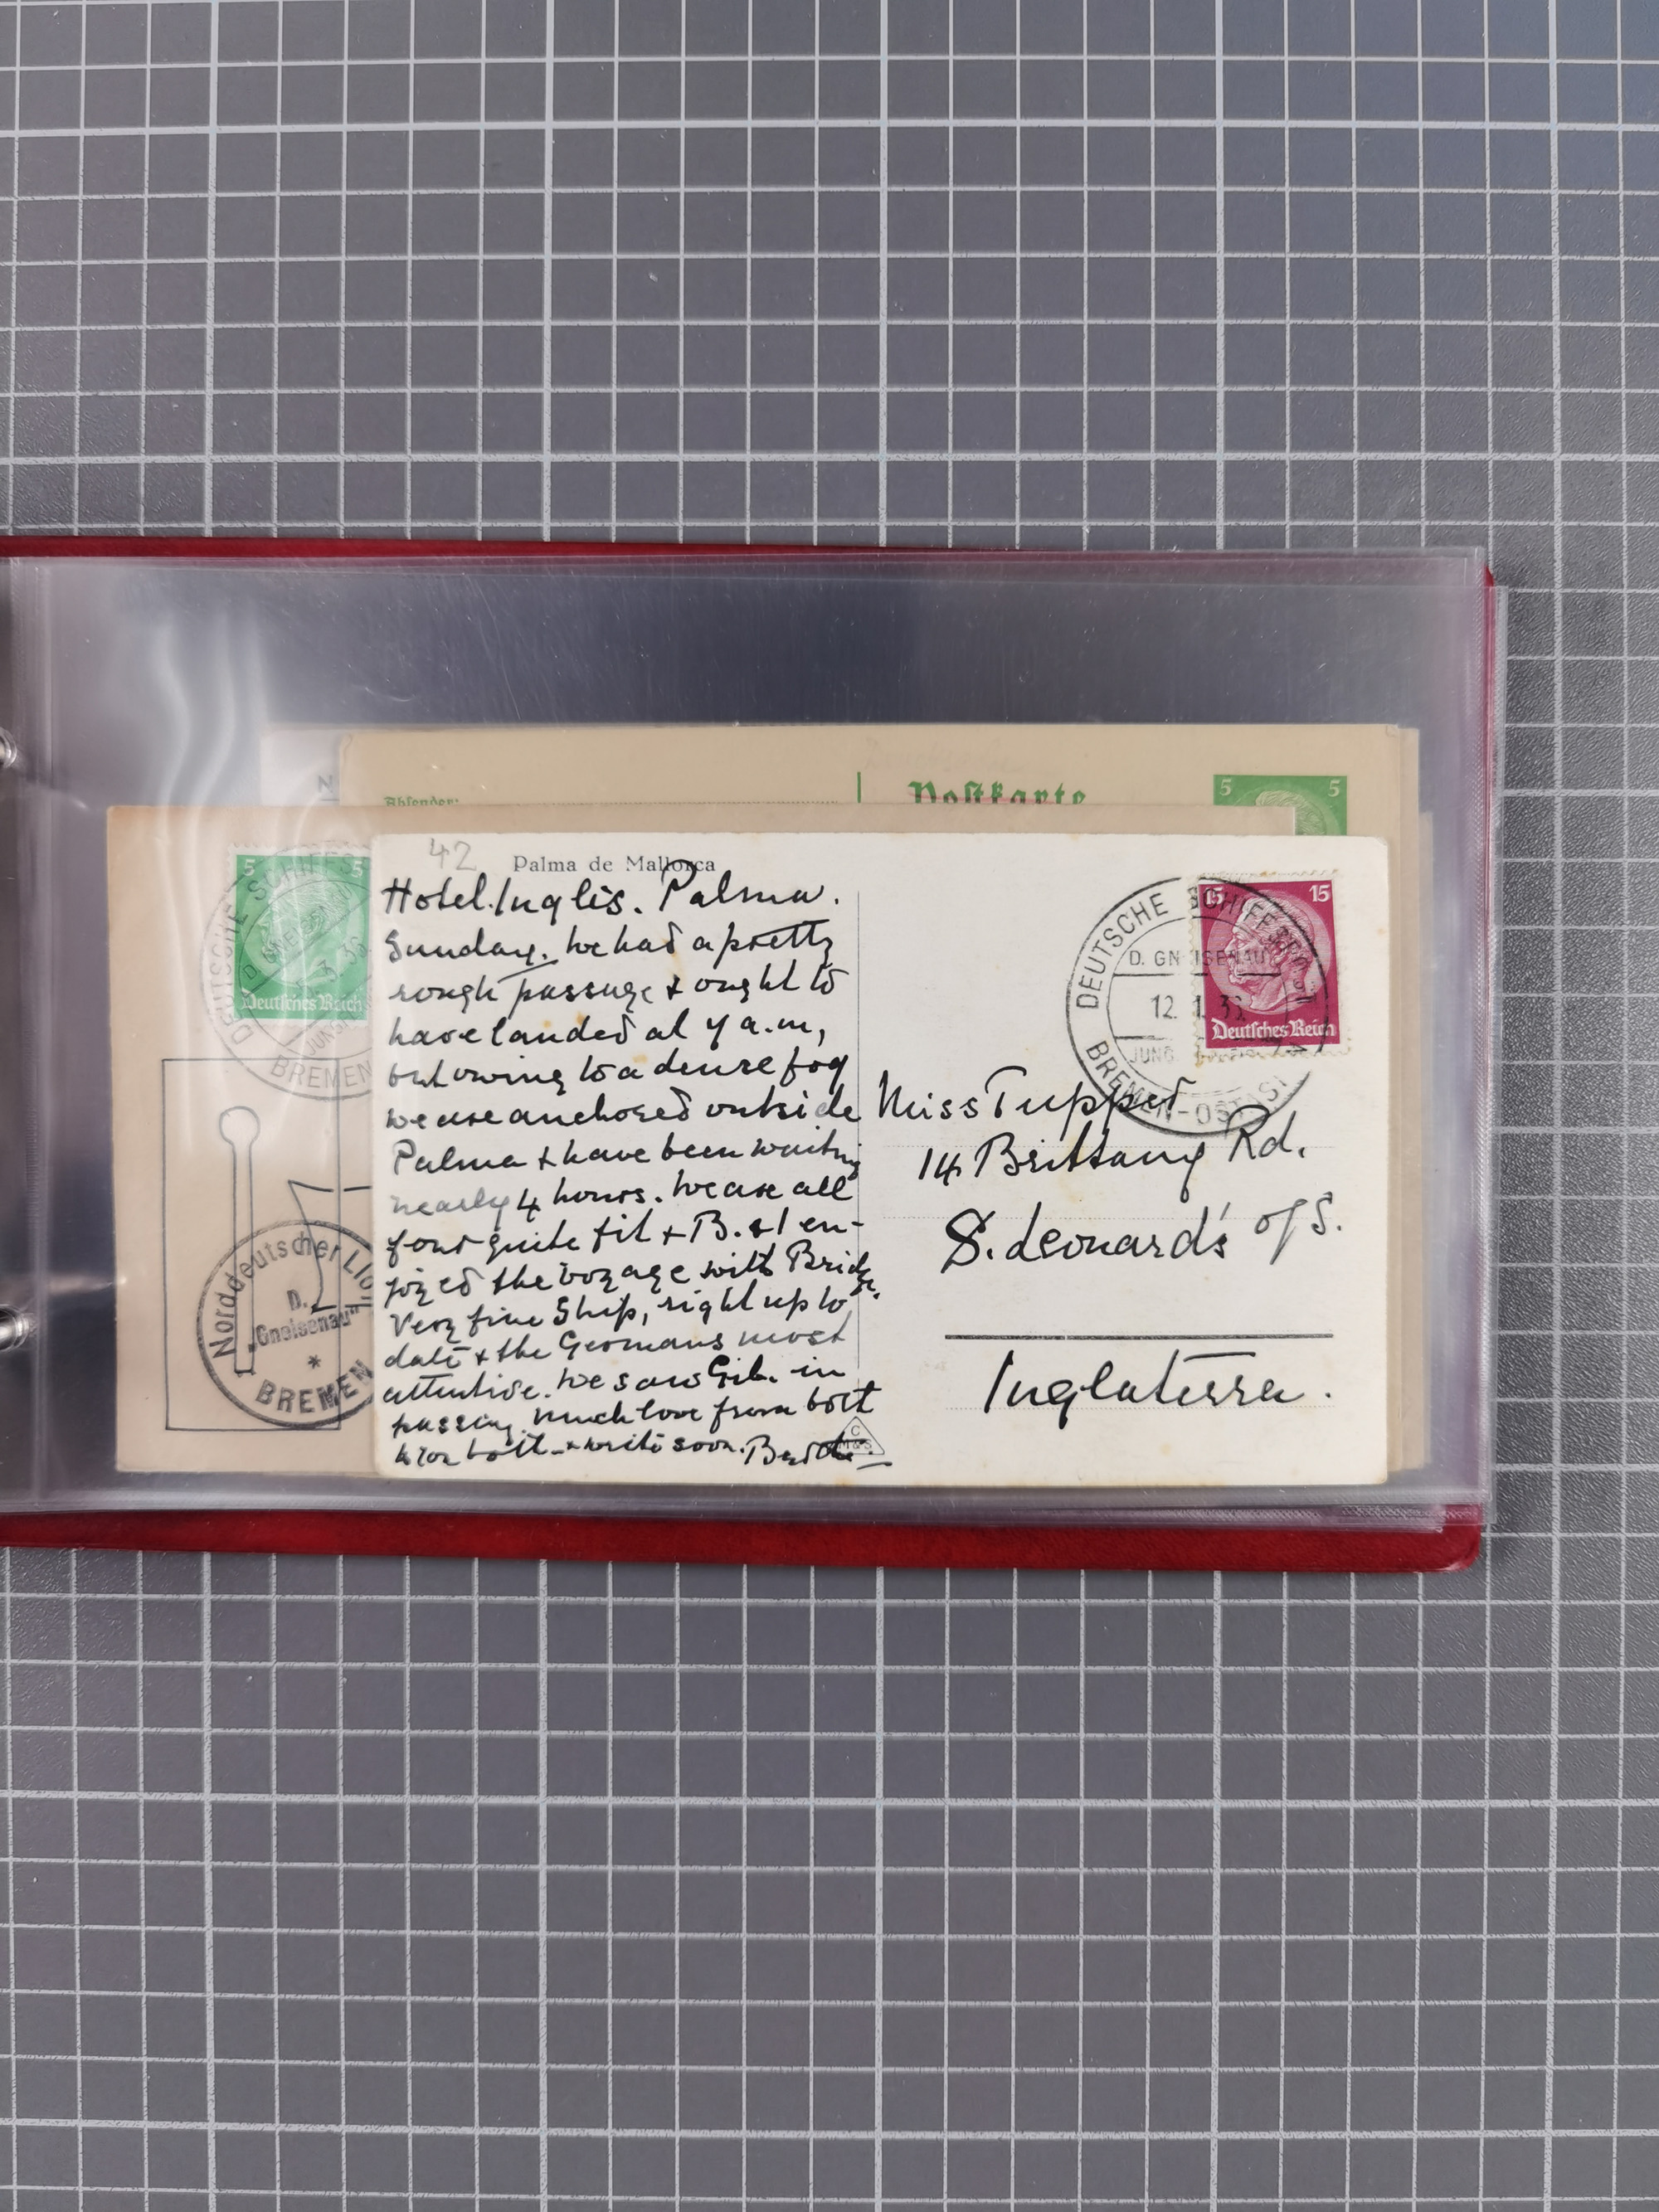 Absender:
Postkarte
5 5
42
Palma de Mallorca
Hotel Inglis. Palma.
Sunday. We had a pretty
rough passage & ought to
have landed at 7 a.m,
but owing to a dense fog
we are anchored outside
Palma & have been waiting
nearly 4 hours. We are all
four quite fit & B. & I en-
joyed the voyage with Bridge.
Very fine Ship, right up to
date & the Germans most
attentive. We saw Gib. in
passing. Much love from both
to you both & write soon.
C
M&S
DEUTSCHE SCHIFFSPOST
D. GNEISENAU
12. 1. 3
JUNG
BREMEN-OSTASI
15 15
Deutsches Reich
Miss Tupper
14 Brittany Rd.
S. Leonard's o/S.
Inglaterra.
5 5
Deutsches Reich
DEUTSCHE SCHIFFSPOST
D. GNEISENAU
JUNG
BREMEN
Norddeutscher Lloyd
D.
"Gneisenau"
*
BREMEN
N